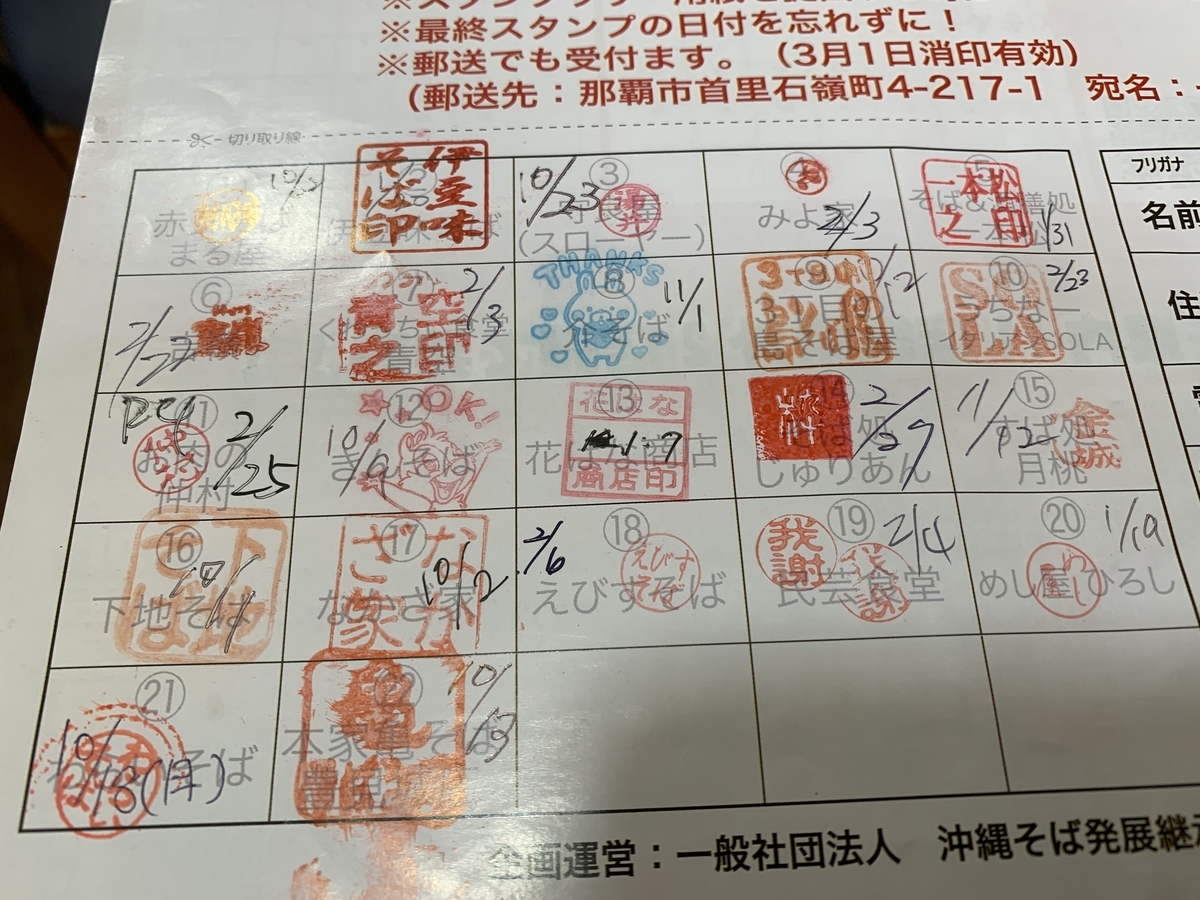 ※最終スタンプの日付を忘れずに！
※郵送でも受付ます。（3月1日消印有効）
（郵送先：那覇市首里石嶺町4-217-1　宛名：
切り取り線
フリガナ
名前
住
10/2
まる座
伊豆味
そば印
③
10/23
守良屋
(スローヤー)
④
みよ家
2/3
⑤
そば&琉膳処
一本松
一本松
之印
1/31
⑥
2/23
⑦
青空
之印
2/3
⑧
THANKS
介そば
11/1
⑨
3丁目の
島そば屋
⑩
うちなー
イタリアンSOLA
SOLA
2/23
⑪
お肉の
仲村
2/25
⑫
OK!
10/9
⑬
花はな商店
商店印
⑭
そば処
じゅりあん
2/27
⑮
すば処
月桃
金城
11/12
⑯
下地そば
⑰
なかざ家
10/2
⑱
えびすそば
えびす
2/6
⑲
民芸食堂
我謝
我謝
2/4
⑳
めし屋ひろし
1/19
㉑
そば
10/18(月)
㉒
本家亀そば
10/13
企画運営：一般社団法人　沖縄そば発展継承